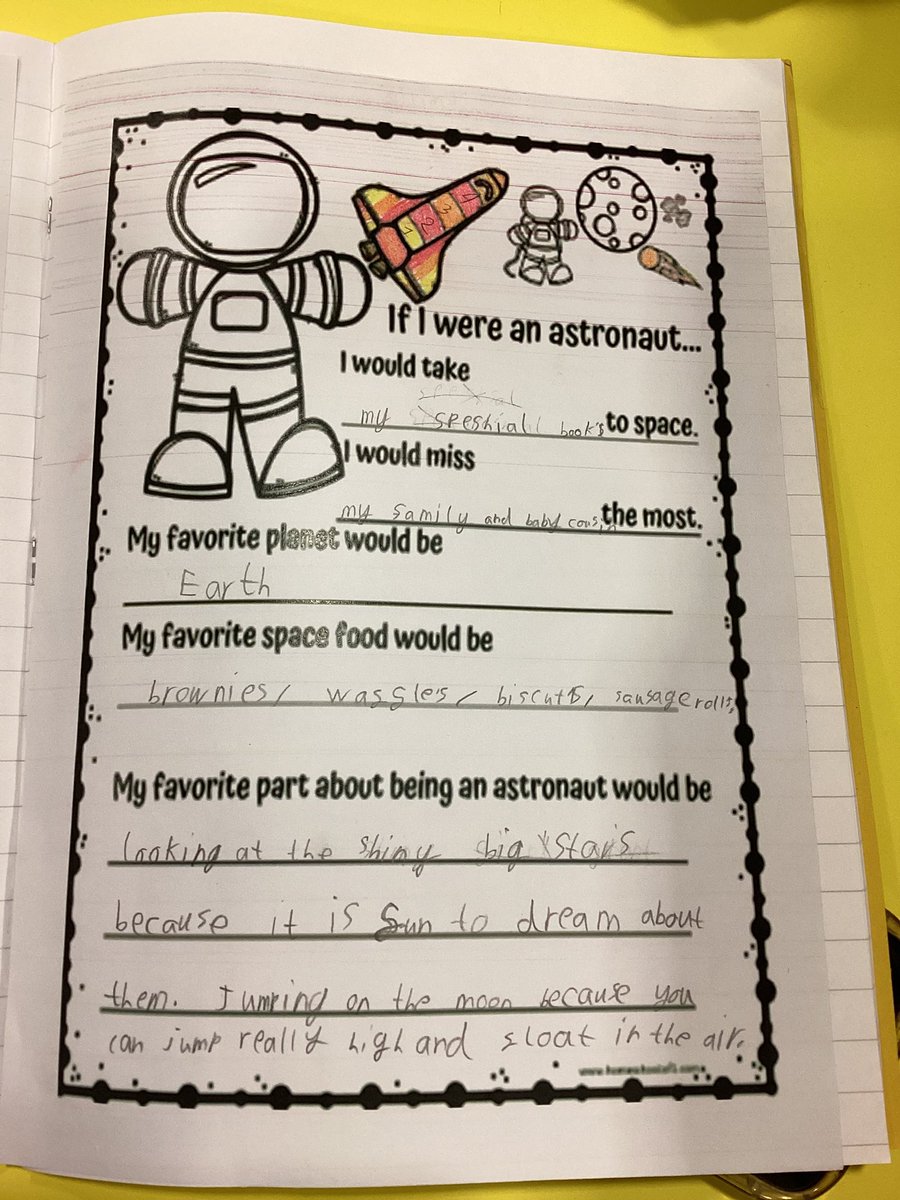 1 2 3 4
If I were an astronaut...
I would take
my speshial book's to space.
I would miss
my family and baby cousin the most.
My favorite planet would be
Earth
My favorite space food would be
brownies, waffle's, biscuts, sausage rolls,
My favorite part about being an astronaut would be
looking at the shiny big stars
because it is fun to dream about
them. Jumping on the moon because you
can jump really high and float in the air.